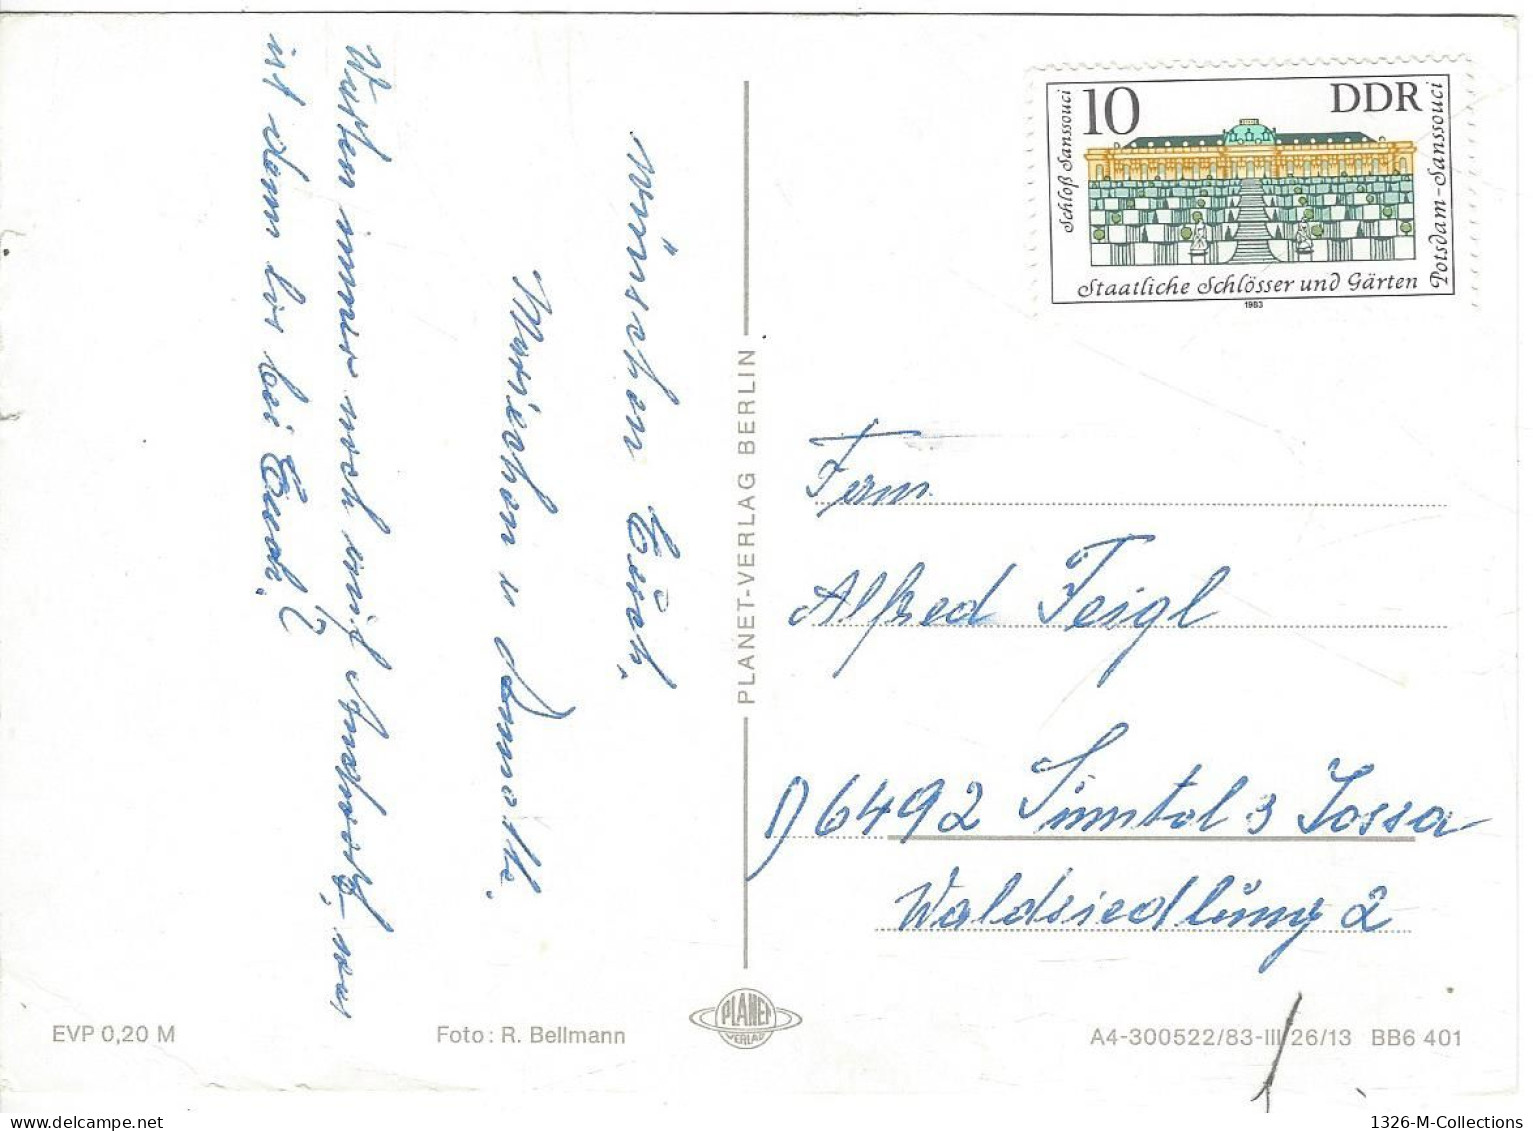 10
DDR
Schloß Sanssouci
Potsdam-Sanssouci
Staatliche Schlösser und Gärten
1983
wünschen Euch,
Mariechen u
Warten immer noch auf Antwort, was
ist denn los bei Euch?
PLANET-VERLAG BERLIN
Fam.
Alfred Feigl
D 6492 Sinntal 3 Jossa
Waldsiedlung 2
PLANET
VERLAG
EVP 0,20 M
Foto: R. Bellmann
A4-300522/83-III/26/13 BB6 401
1326-M-Collections